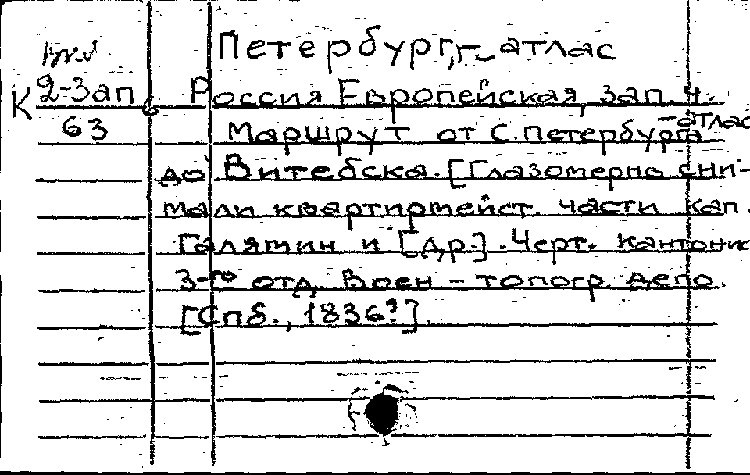 Петербург, г. – атлас
К 2-Зап. 6
63
Россия Европейская, зап. ч.
– атлас
Маршрут от С. Петербурга
до Витебска. [Глазомерно сни-
мали квартирмейст. части кап.
Галямин и [др.]. Черт. кантонис
3-го отд. Воен – топогр. депо.
[Спб., 1836?].